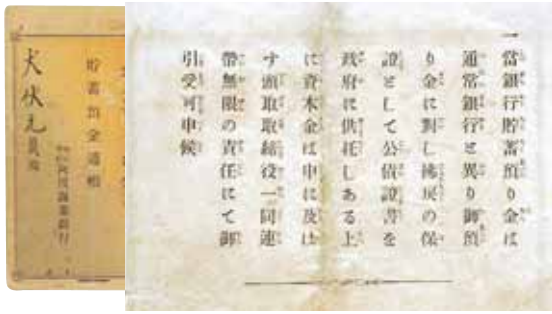 一
當銀行貯蓄預り金は
通常銀行と異り御預
り金に對し拂戻の保
證として公債證書を
政府に供托しある上
に資本金は申に及は
す頭取取締役一同連
帶無限の責任にて御
引受可申候
貯蓄預金通帳
商業銀行
犬伏元